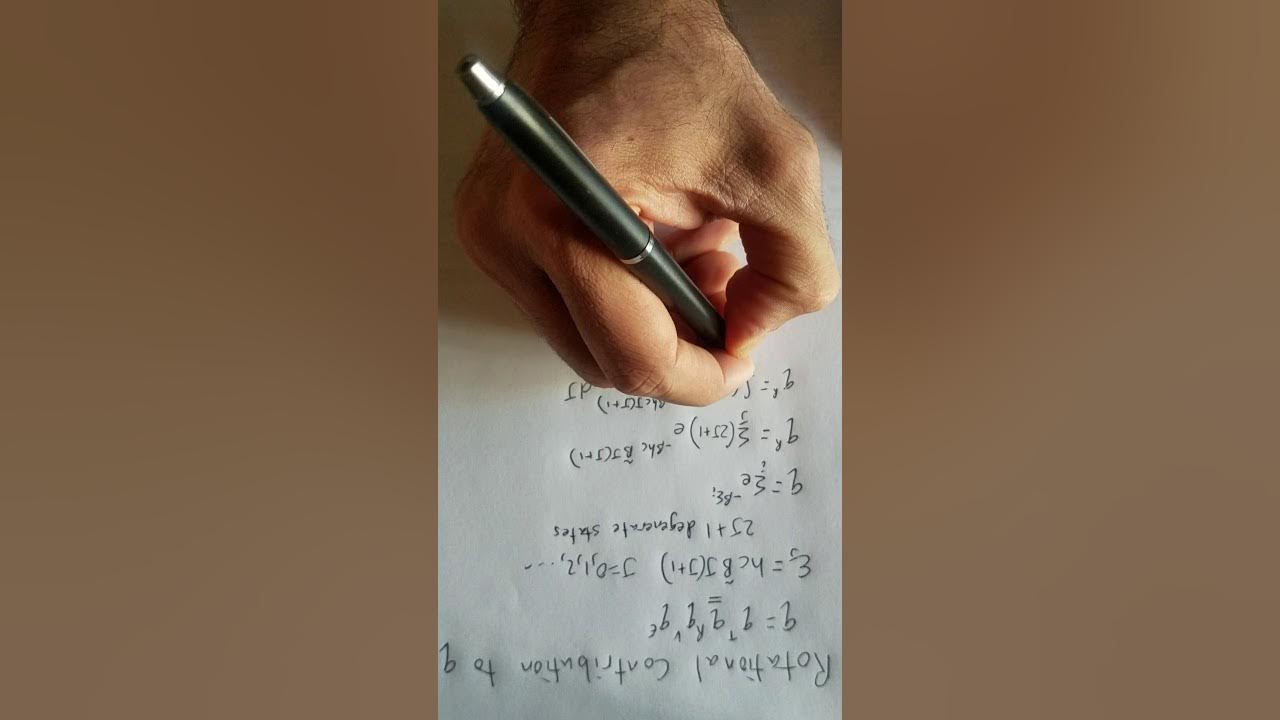 Rotational Contribution to q
q = q^T q^R q^V q^E
E_J = hcB̃J(J+1) J=0,1,2,...
2J+1 degenerate states
q = Σ_i e^{-βε_i}
q^R = Σ_J (2J+1) e^{-βhcB̃J(J+1)}
q^R = ∫ βhcJ(J+1) dJ